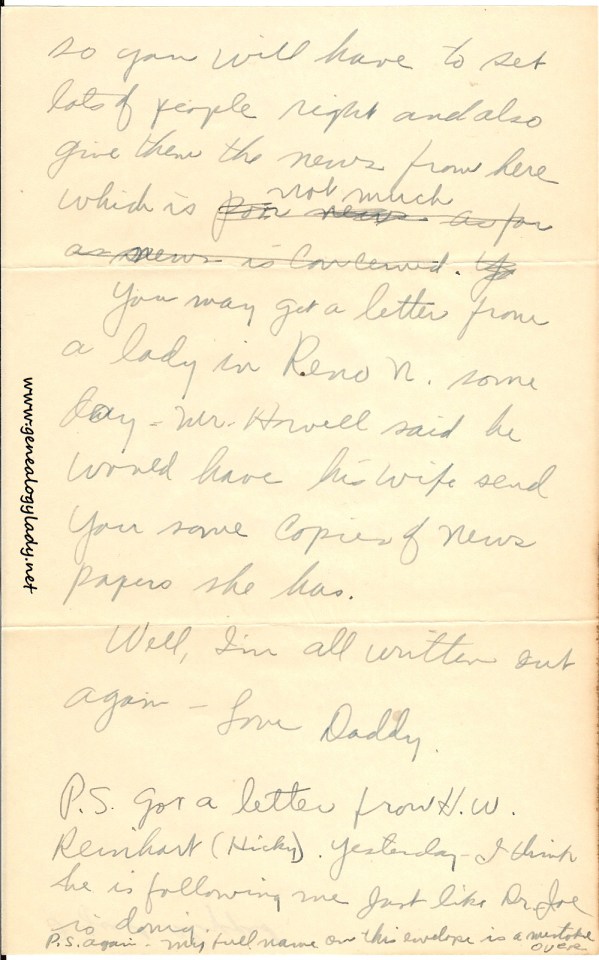 so you will have to set
lots of people right and also
give them the news from here
not much
which is poor news as far
as news is concerned.
You may get a letter from
a lady in Reno N. some
day - Mr. Howell said he
would have his wife send
You some copies of news
papers she has.
Well, I'm all written out
again - Love Daddy.
P.S. Got a letter from H.W.
Reinhart (Hicky). Yesterday - I think
he is following me Just like Dr. Joe
is doing.
P.S. again - my full name on this envelope is a mistake
OVER
www.genealogylady.net